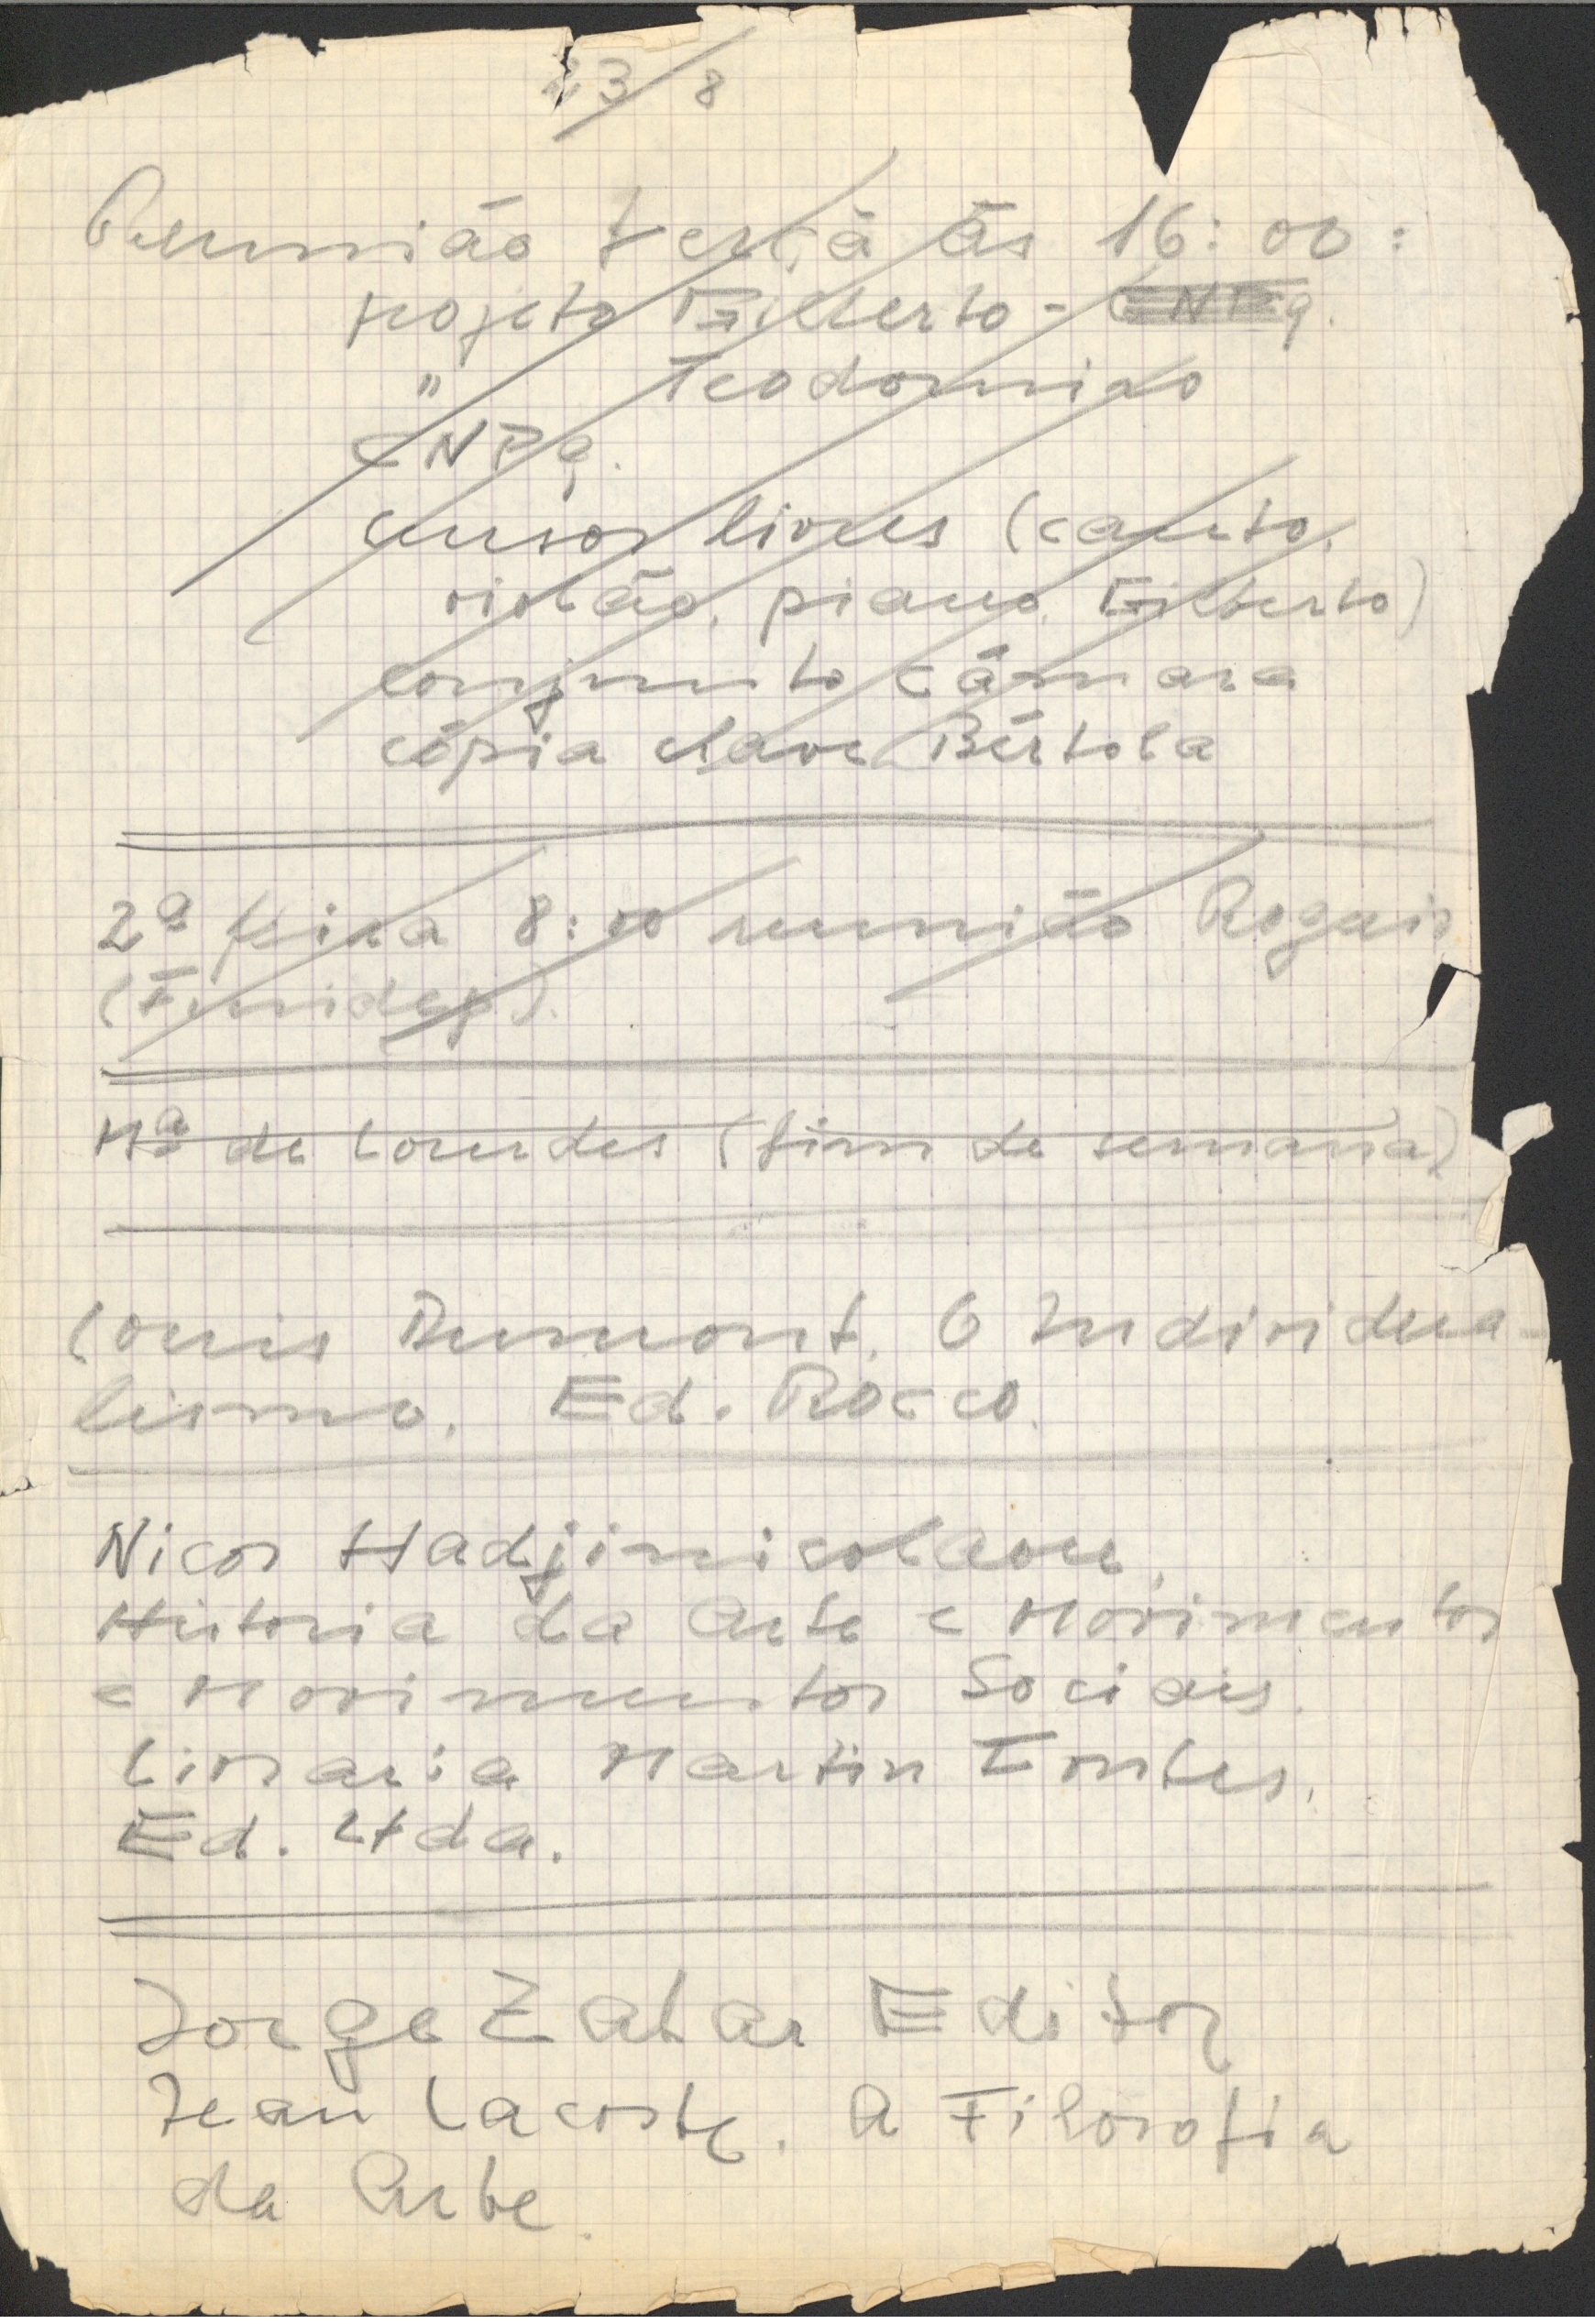 23/8
Reunião terça às 16:00:
projeto Gilberto - CNPq.
" Teodomiro
CNPq.
cursos livres (canto,
violão, piano, Gilberto)
conjunto câmara
cópia chave Bértola
2ª feira 8:00 reunião
(Fundep).
Mª de Lourdes (fim de semana)
Louis Dumont. O Individua-
lismo. Ed. Rocco.
Nicos Hadjinicolaou,
Historia da Arte e Movimentos
e Movimentos Sociais.
Livraria Martin Fontes,
Ed. Ltda.
Jorge Zahar Editor
Jean Lacoste. A Filosofia
da Arte.